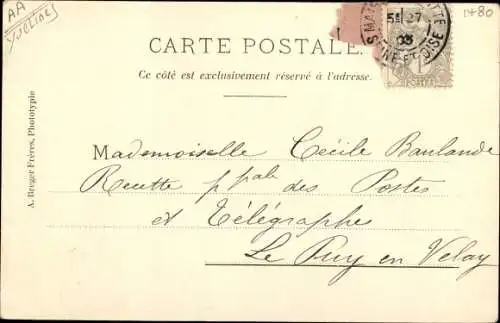 AA
YVELINES
1480
CARTE POSTALE.
Ce côté est exclusivement réservé à l'adresse.
SEINE-ET-OISE
A. Breger Frères, Phototypie
Mademoiselle Cécile Baulande
Recette ppale des Postes
et Télégraphe
Le Puy en Velay